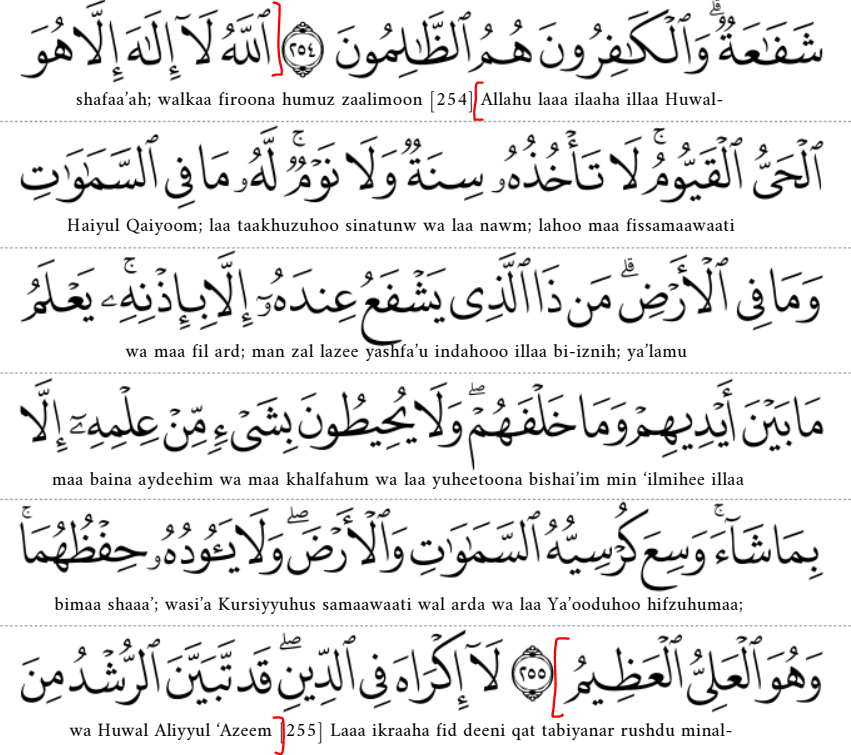 شَفَـٰعَةٌ ۗ وَٱلْكَـٰفِرُونَ هُمُ ٱلظَّـٰلِمُونَ ٢٥٤ ٱللَّهُ لَآ إِلَـٰهَ إِلَّا هُوَ
shafaa’ah; walkaa firoona humuz zaalimoon [254] Allahu laaa ilaaha illaa Huwal-
ٱلْحَىُّ ٱلْقَيُّومُ ۚ لَا تَأْخُذُهُۥ سِنَةٌ وَلَا نَوْمٌ ۚ لَّهُۥ مَا فِى ٱلسَّمَـٰوَٰتِ
Haiyul Qaiyoom; laa taakhuzuhoo sinatunw wa laa nawm; lahoo maa fissamaawaati
وَمَا فِى ٱلْأَرْضِ ۗ مَن ذَا ٱلَّذِى يَشْفَعُ عِندَهُۥٓ إِلَّا بِإِذْنِهِۦ ۚ يَعْلَمُ
wa maa fil ard; man zal lazee yashfa’u indahooo illaa bi-iznih; ya’lamu
مَا بَيْنَ أَيْدِيهِمْ وَمَا خَلْفَهُمْ ۖ وَلَا يُحِيطُونَ بِشَىْءٍ مِّنْ عِلْمِهِۦٓ إِلَّا
maa baina aydeehim wa maa khalfahum wa laa yuheetoona bishai’im min ‘ilmihee illaa
بِمَا شَآءَ ۚ وَسِعَ كُرْسِيُّهُ ٱلسَّمَـٰوَٰتِ وَٱلْأَرْضَ ۖ وَلَا يَـُٔودُهُۥ حِفْظُهُمَا ۚ
bimaa shaaa’; wasi’a Kursiyyuhus samaawaati wal arda wa laa Ya’ooduhoo hifzuhumaa;
وَهُوَ ٱلْعَلِىُّ ٱلْعَظِيمُ ٢٥٥ لَآ إِكْرَاهَ فِى ٱلدِّينِ ۖ قَد تَّبَيَّنَ ٱلرُّشْدُ مِنَ
wa Huwal Aliyyul ‘Azeem [255] Laaa ikraaha fid deeni qat tabiyanar rushdu minal-